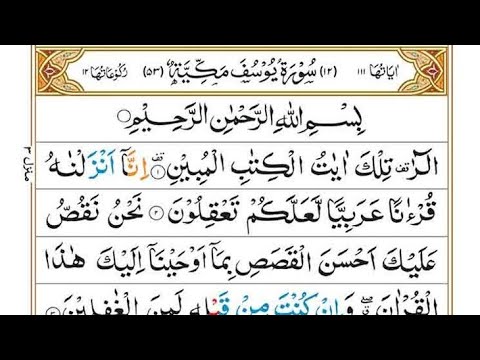 اٰيَاتُهَا ١١١ (١٢) سُوْرَةُ يُوْسُفَ مَكِّيَّةٌ (٥٣) رُكُوْعَاتُهَا ١٢
بِسْمِ اللّٰهِ الرَّحْمٰنِ الرَّحِيْمِ
الٓرٰ ۫ تِلْكَ اٰيٰتُ الْكِتٰبِ الْمُبِيْنِ ۫ ١ اِنَّاۤ اَنْزَلْنٰهُ
قُرْءٰنًا عَرَبِيًّا لَّعَلَّكُمْ تَعْقِلُوْنَ ٢ نَحْنُ نَقُصُّ
عَلَيْكَ اَحْسَنَ الْقَصَصِ بِمَاۤ اَوْحَيْنَاۤ اِلَيْكَ هٰذَا
الْقُرْاٰنَ ۖ وَاِنْ كُنْتَ مِنْ قَبْلِهٖ لَمِنَ الْغٰفِلِيْنَ ٣
منزل ٣